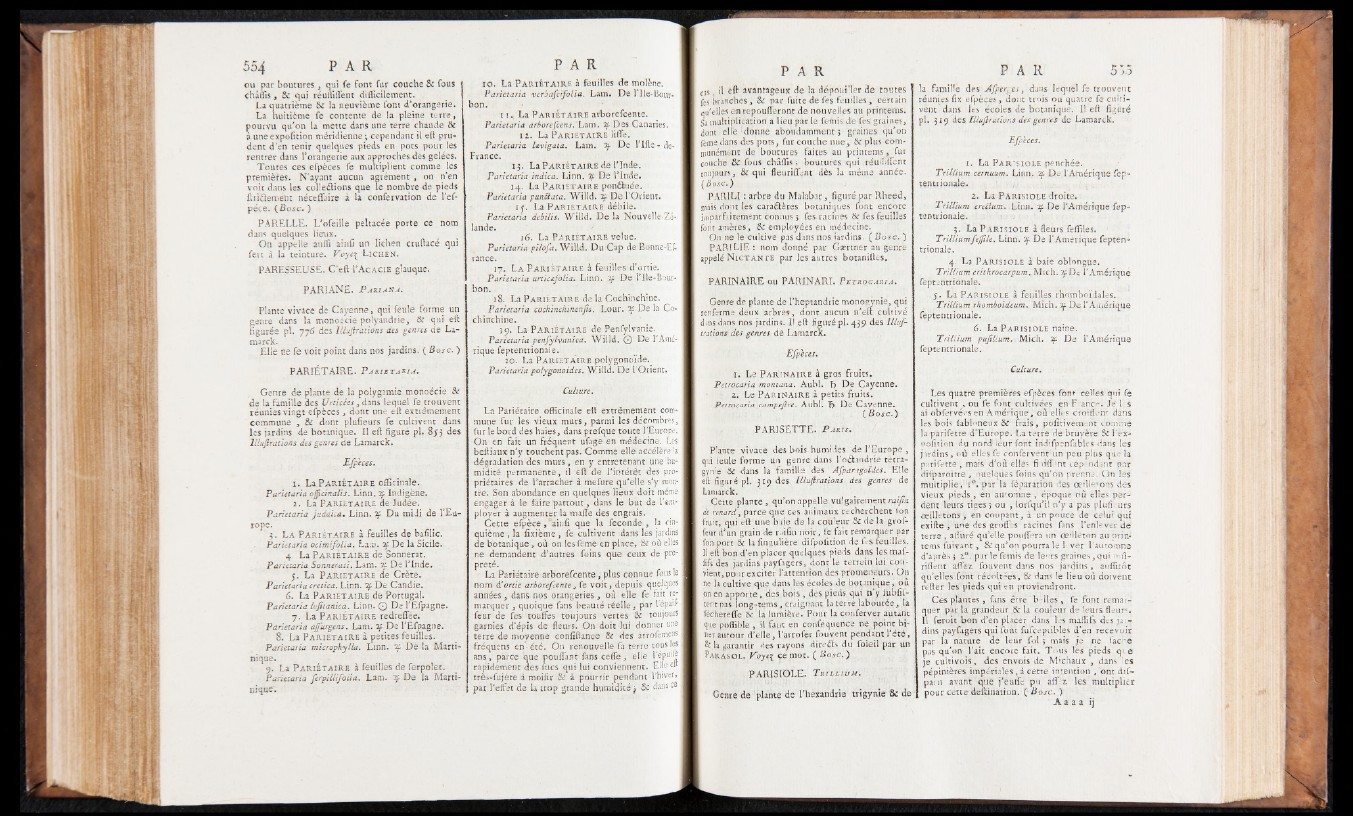 554 P A R
ou par boutures, qui ſe font ſur couche & ſous
châſſis, & qui réuſſiſſent difficilement.
La quatrième & la neuvième ſont d'orangerie.
La huitième ſe contente de la pleine terre,
pourvu qu'on la mette dans une terre chaude &
à une expoſition méridienne; cependant il eſt pru-
dent d'en tenir quelques pieds en pots pour les
rentrer dans l'orangerie aux approches des gelées.
Toutes ces eſpèces ſe multiplient comme les
premières. N'ayant aucun agrément, on n'en
voit dans les collections que le nombre de pieds
ſtrictement néceſſaire à la conſervation de l'eſ-
pèce. (Bosc.)
PARELLE. L'oſeille peltacée porte ce nom
dans quelques lieux.
On appelle auſſi ainſi un lichen cruſtacé qui
ſert à la teinture. Voyez LICHEN.
PARESSEUSE. C'eſt l'ACACIE glauque.
PARIANE. PARIANA.
Plante vivace de Cayenne, qui ſeule forme un
genre dans la monoécie polyandrie, & qui eſt
figurée pl. 776 des Illuſtrations des genres de La-
marck.
Elle ne ſe voit point dans nos jardins. (Bosc.)
PARIÉTAIRE. PARIETARIA.
Genre de plante de la polygamie monoécie &
de la famille des Urticées, dans lequel ſe trouvent
réunies vingt eſpèces, dont une eſt extrêmement
commune, & dont pluſieurs ſe cultivent dans
les jardins de botanique. Il eſt figuré pl. 853 des
Illuſtrations des genres de Lamarck.
Eſpèces.
1. La PARIÉTAIRE officinale.
Parietaria officinalis. Linn. ♃ Indigène.
2. La PARIÉTAIRE de Judée.
Parietaria judaica. Linn. ♃ Du midi de l'Eu-
rope.
3. La PARIÉTAIRE à feuilles de baſilic.
Parietaria ocimifolia. Lam. ♃ De la Sicile.
4. La PARIÉTAIRE de Sonnerat.
Parietaria Sonnerati. Lam. ♃ De l'Inde.
5. La PARIÉTAIRE de Crète.
Parietaria cretica. Linn. ♃ De Candie.
6. La PARIÉTAIRE de Portugal.
Parietaria luſitanica. Linn. ☉ De l'Eſpagne.
7. La PARIÉTAIRE redreſſée.
Parietaria aſſurgens. Lam. ♃ De l'Eſpagne.
8. La PARIÉTAIRE à petites feuilles.
Parietaria microphylla. Linn. ♃ De la Marti-
nique.
9. La PARIÉTAIRE à feuilles de ſerpolet.
Parietaria ſerpillifolia. Lam. ♃ De la Marti-
nique.
P A R
10. La PARIÉTAIRE à feuilles de molène.
Parietaria verbaſcifolia. Lam. De l'Ile-Bour-
bon.
11. La PARIÉTAIRE arboreſcente.
Parietaria arboreſcens. Lam. ♃ Des Canaries.
12. La PARIÉTAIRE liſſe.
Parietaria levigata. Lam. ♃ De l'Iſle-de-
France.
13. La PARIÉTAIRE de l'Inde.
Parietaria indica. Linn. ♃ De l'Inde.
14. La PARIÉTAIRE ponctuée.
Parietaria punctata. Willd. ♃ De l'Orient.
15. La PARIÉTAIRE débile.
Parietaria debilis. Willd. De la Nouvelle-Zé-
lande.
16. La PARIÉTAIRE velue.
Parietaria piloſa. Willd. Du Cap de Bonne-Eſ-
rance.
17. LA PARIÉTAIRE à feuilles d'ortie.
Parietaria urticæfolia. Linn. ♃ De l'Ile-Bour-
bon.
18. La PARIÉTAIRE de la Cochinchine.
Parietaria cochinchinenſis. Lour. ♃ De la Co-
chinchine.
19. La PARIÉTAIRE de Penſylvanie.
Parietaria penſylvanica. Willd. ☉ De l'Amé-
rique ſeptentrionale.
20. La PARIÉTAIRE polygonoïde.
Parietaria polygonoides. Willd. De l'Orient.
Culture.
La Pariétaire officinale eſt extrêmement com-
mune ſur les vieux murs, parmi les décombres,
ſur le bord des haies, dans preſque toute l'Europe.
On en fait un fréquent uſage en médecine. Les
beſtiaux n'y touchent pas. Comme elle accélère la
dégradation des murs, en y entretenant une hu-
midité permanente, il eſt de l'intérêt des pro-
priétaires de l'arracher à meſure qu'elle s'y mon-
tre. Son abondance en quelques lieux doit même
engager à le faire partout, dans le but de l'em-
ployer à augmenter la maſſe des engrais.
Cette eſpèce, ainſi que la ſeconde, la cin-
quième, la ſixième, ſe cultivent dans les jardins
de botanique, où on les ſème en place, & où elles
ne demandent d'autres ſoins que ceux de pro-
preté.
La Pariétaire arboreſcente, plus connue ſous le
nom d'ortie arboreſcente, ſe voit, depuis quelques
années, dans nos orangeries, où elle ſe fait re-
marquer, quoique ſans beauté réelle, par l'épaiſ-
ſeur de ſes touffes toujours vertes & toujours
garnies d'épis de fleurs. On doit lui donner une
terre de moyenne conſiſtance & des arroſemens
fréquens en été. On renouvelle ſa terre tous les
ans, parce que pouſſant ſans ceſſe, elle l'épuiſe
rapidement des ſucs qui lui conviennent. Elle eſt
très-ſujette à moiſir & à pourrir pendant l'hiver,
par l'effet de la trop grande humidité, & dans ce
P A R
cas, il eſt avantageux de la dépouiller de toutes
ſes branches, & par ſuite de ſes feuilles, certain
qu'elles en repouſſeront de nouvelles au printems.
Sa multiplication a lieu par le ſemis de ſes graines,
dont elle donne abondamment; graines qu'on
ſème dans des pots, ſur couche nue, & plus com-
munément de boutures faites au printems, ſur
couche & ſous châſſis: boutures qui réuſſiſſent
toujours, & qui fleuriſſent dès la même année.
(Bosc.)
PARILI: arbre du Malabar, figuré par Rheed,
mais dont les caractères botaniques ſont encore
imparfaitement connus; ſes racines & ſes feuilles
ſont amères, & employées en médecine.
On ne le cultive pas dans nos jardins. (Bosc.)
PARILIE: nom donné par Gærtner au genre
appelé NICTANTE par les autres botaniſtes.
PARINAIRE ou PARINARI. PETROCARIA.
Genre de plante de l'heptandrie monogynie, qui
renferme deux arbres, dont aucun n'eſt cultivé
dans nos jardins. Il eſt figuré pl. 439 des Illuſ-
trations des genres de Lamarck.
Eſpèces.
1. Le PARINAIRE à gros fruits.
Petrocaria montana. Aubl. ♄ De Cayenne.
2. Le PARINAIRE à petits fruits.
Petrocaria campeſtre. Aubl. ♄ De Cayenne.
(Bosc.)
PARISETTE. PARIS.
Plante vivace des bois humides de l'Europe,
qui ſeule forme un genre dans l'octandrie tétra-
gynie & dans la famille des Aſparagoïdes. Elle
eſt figurée pl. 319 des Illuſtrations des genres de
Lamarck.
Cette plante, qu'on appelle vulgairement raiſin
de renard, parce que ces animaux recherchent ſon
fruit, qui eſt une baie de la couleur & de la groſ-
ſeur d'un grain de raiſin noir, ſe fait remarquer par
ſon port & la ſingulière diſpoſition de ſes feuilles.
Il eſt bon d'en placer quelques pieds dans les maſ-
ſifs des jardins payſagers, dont le terrein lui con-
vient, pour exciter l'attention des promeneurs. On
ne la cultive que dans les écoles de botanique, où
on en apporte, des bois, des pieds qui n'y ſubſiſ-
tent pas long-tems, craignant la terre labourée, la
ſéchereſſe & la lumière. Pour la conſerver autant
que poſſible, il faut en conſéquence ne point bi-
ner autour d'elle, l'arroſer ſouvent pendant l'été,
& la garantir des rayons directs du ſoleil par un
PARASOL. Voyez ce mot. (Bosc.)
PARISIOLE. TRILLIUM.
Genre de plante de l'hexandrie trigynie & de
P A R 555
la famille des Aſperges, dans lequel ſe trouvent
réunies ſix eſpèces, dont trois ou quatre ſe culti-
vent dans les écoles de botanique. Il eſt figuré
pl. 319 des Illuſtrations des genres de Lamarck.
Eſpèces.
1. La PARISIOLE penchée.
Trillium cernuum. Linn. ♃ De l'Amérique ſep-
tentrionale.
2. La PARISIOLE droite.
Trillium erectum. Linn. ♃ De l'Amérique ſep-
tentrionale.
3. La PARISIOLE à fleurs ſeſſiles.
Trillium ſeſſile. Linn. ♃ De l'Amérique ſepten-
trionale.
4. La PARISIOLE à baie oblongue.
Trillium erithrocarpum. Mich. ♃ De l'Amérique
ſeptentrionale.
5. La PARISIOLE à feuilles rhomboïdales.
Trillium rhomboideum. Mich. ♃ De l'Amérique
ſeptentrionale.
6. La PARISIOLE naine.
Trillium puſillum. Mich. ♃ De l'Amérique
ſeptentrionale.
Culture.
Les quatre premières eſpèces ſont celles qui ſe
cultivent, ou ſe ſont cultivées en France. Je les
ai obſervées en Amérique, où elles croiſſent dans
les bois ſablonneux & frais, poſitivement comme
la pariſette d'Europe. La terre de bruyère & l'ex-
poſition du nord leur ſont indiſpenſables dans les
jardins, où elles ſe conſervent un peu plus que la
pariſette, mais d'où elles finiſſent cependant par
diſparoître, quelques ſoins qu'on prenne. On les
multiplie, 1°. par la ſéparation des œilletons des
vieux pieds, en automne, époque où elles per-
dent leurs tiges; ou, lorſqu'il n'y a pas pluſieurs
œilletons, en coupant, à un pouce de celui qui
exiſte, une des groſſes racines ſans l'enlever de
terre, aſſuré qu'elle pouſſera un œilleton au prin-
tems ſuivant, & qu'on pourra le lever l'automne
d'après; 2°. par le ſemis de leurs graines, qui mû-
riſſent aſſez ſouvent dans nos jardins, auſſitôt
qu'elles ſont récoltées, & dans le lieu où doivent
reſter les pieds qui en proviendront.
Ces plantes, ſans être belles, ſe font remar-
quer par la grandeur & la couleur de leurs fleurs.
Il ſeroit bon d'en placer dans les maſſifs des jar-
dins payſagers qui ſont ſuſceptibles d'en recevoir
par la nature de leur ſol; mais je ne ſache
pas qu'on l'ait encore fait. Tous les pieds que
je cultivois, des envois de Michaux, dans les
pépinières impériales, à cette intention, ont diſ-
paru avant que j'euſſe pu aſſez les multiplier
pour cette deſtination. (Bosc.)
Aaaa ij